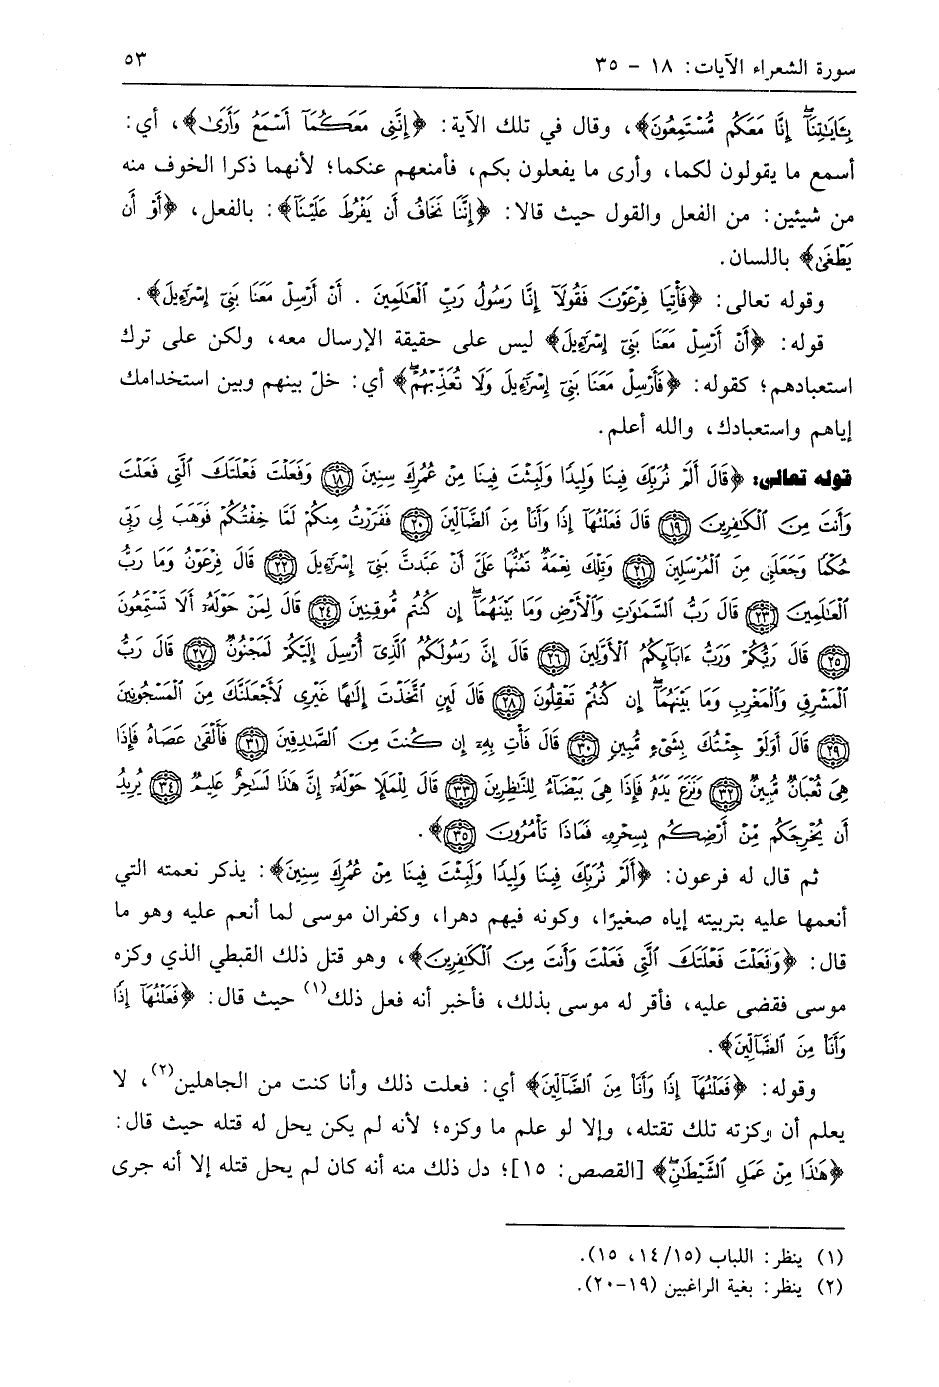 سورة الشعراء الآيات: ١٨ - ٣٥
٥٣
بِـَٔايَٰتِنَآۖ إِنَّا مَعَكُم مُّسْتَمِعُونَ﴾، وقال في تلك الآية: ﴿إِنَّنِى مَعَكُمَآ أَسْمَعُ وَأَرَىٰ﴾، أي:
أسمع ما يقولون لكما، وأرى ما يفعلون بكم، فأمنعهم عنكما؛ لأنهما ذكرا الخوف منه
من شيئين: من الفعل والقول حيث قالا: ﴿إِنَّنَا نَخَافُ أَن يَفْرُطَ عَلَيْنَآ﴾: بالفعل، ﴿أَوْ أَن
يَطْغَىٰ﴾ باللسان.
وقوله تعالى: ﴿فَأْتِيَا فِرْعَوْنَ فَقُولَآ إِنَّا رَسُولُ رَبِّ ٱلْعَٰلَمِينَ . أَنْ أَرْسِلْ مَعَنَا بَنِىٓ إِسْرَٰٓءِيلَ﴾.
قوله: ﴿أَنْ أَرْسِلْ مَعَنَا بَنِىٓ إِسْرَٰٓءِيلَ﴾ ليس على حقيقة الإرسال معه، ولكن على ترك
استعبادهم؛ كقوله: ﴿فَأَرْسِلْ مَعَنَا بَنِىٓ إِسْرَٰٓءِيلَ وَلَا تُعَذِّبْهُمْۖ﴾ أي: خلّ بينهم وبين استخدامك
إياهم واستعبادك، والله أعلم.
قوله تعالى: ﴿قَالَ أَلَمْ نُرَبِّكَ فِينَا وَلِيدًا وَلَبِثْتَ فِينَا مِنْ عُمُرِكَ سِنِينَ ١٨ وَفَعَلْتَ فَعْلَتَكَ ٱلَّتِى فَعَلْتَ
وَأَنتَ مِنَ ٱلْكَٰفِرِينَ ١٩ قَالَ فَعَلْتُهَآ إِذًا وَأَنَا۠ مِنَ ٱلضَّآلِّينَ ٢٠ فَفَرَرْتُ مِنكُمْ لَمَّا خِفْتُكُمْ فَوَهَبَ لِى رَبِّى
حُكْمًا وَجَعَلَنِى مِنَ ٱلْمُرْسَلِينَ ٢١ وَتِلْكَ نِعْمَةٌ تَمُنُّهَا عَلَىَّ أَنْ عَبَّدتَّ بَنِىٓ إِسْرَٰٓءِيلَ ٢٢ قَالَ فِرْعَوْنُ وَمَا رَبُّ
ٱلْعَٰلَمِينَ ٢٣ قَالَ رَبُّ ٱلسَّمَٰوَٰتِ وَٱلْأَرْضِ وَمَا بَيْنَهُمَآۖ إِن كُنتُم مُّوقِنِينَ ٢٤ قَالَ لِمَنْ حَوْلَهُۥٓ أَلَا تَسْتَمِعُونَ
٢٥ قَالَ رَبُّكُمْ وَرَبُّ ءَابَآئِكُمُ ٱلْأَوَّلِينَ ٢٦ قَالَ إِنَّ رَسُولَكُمُ ٱلَّذِىٓ أُرْسِلَ إِلَيْكُمْ لَمَجْنُونٌ ٢٧ قَالَ رَبُّ
ٱلْمَشْرِقِ وَٱلْمَغْرِبِ وَمَا بَيْنَهُمَآۖ إِن كُنتُمْ تَعْقِلُونَ ٢٨ قَالَ لَئِنِ ٱتَّخَذْتَ إِلَٰهًا غَيْرِى لَأَجْعَلَنَّكَ مِنَ ٱلْمَسْجُونِينَ
٢٩ قَالَ أَوَلَوْ جِئْتُكَ بِشَىْءٍ مُّبِينٍ ٣٠ قَالَ فَأْتِ بِهِۦٓ إِن كُنتَ مِنَ ٱلصَّٰدِقِينَ ٣١ فَأَلْقَىٰ عَصَاهُ فَإِذَا
هِىَ ثُعْبَانٌ مُّبِينٌ ٣٢ وَنَزَعَ يَدَهُۥ فَإِذَا هِىَ بَيْضَآءُ لِلنَّٰظِرِينَ ٣٣ قَالَ لِلْمَلَإِ حَوْلَهُۥٓ إِنَّ هَٰذَا لَسَٰحِرٌ عَلِيمٌ ٣٤ يُرِيدُ
أَن يُخْرِجَكُم مِّنْ أَرْضِكُم بِسِحْرِهِۦ فَمَاذَا تَأْمُرُونَ ٣٥﴾.
ثم قال له فرعون: ﴿أَلَمْ نُرَبِّكَ فِينَا وَلِيدًا وَلَبِثْتَ فِينَا مِنْ عُمُرِكَ سِنِينَ﴾: يذكر نعمته التي
أنعمها عليه بتربيته إياه صغيرًا، وكونه فيهم دهرا، وكفران موسى لما أنعم عليه وهو ما
قال: ﴿وَفَعَلْتَ فَعْلَتَكَ ٱلَّتِى فَعَلْتَ وَأَنتَ مِنَ ٱلْكَٰفِرِينَ﴾، وهو قتل ذلك القبطي الذي وكزه
موسى فقضى عليه، فأقر له موسى بذلك، فأخبر أنه فعل ذلك(١) حيث قال: ﴿فَعَلْتُهَآ إِذًا
وَأَنَا۠ مِنَ ٱلضَّآلِّينَ﴾.
وقوله: ﴿فَعَلْتُهَآ إِذًا وَأَنَا۠ مِنَ ٱلضَّآلِّينَ﴾ أي: فعلت ذلك وأنا كنت من الجاهلين(٢)، لا
يعلم أن وكزته تلك تقتله، وإلا لو علم ما وكزه؛ لأنه لم يكن يحل له قتله حيث قال:
﴿هَٰذَا مِنْ عَمَلِ ٱلشَّيْطَٰنِۖ﴾ [القصص: ١٥]؛ دل ذلك منه أنه كان لم يحل قتله إلا أنه جرى
(١) ينظر: اللباب (١٥/١٤، ١٥).
(٢) ينظر: بغية الراغبين (١٩-٢٠).